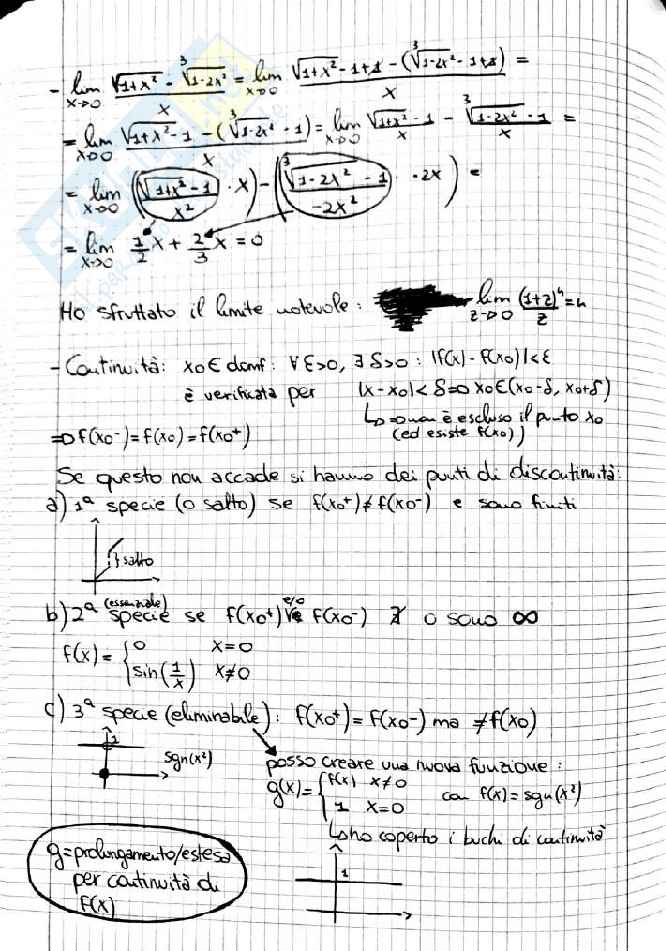 - lim x→0 (√(1+x²) - ∛(1-2x²))/x = lim x→0 (√(1+x²) - 1 + 1 - (∛(1-2x²) - 1 + 1))/x =
= lim x→0 (√(1+x²) - 1 - (∛(1-2x²) - 1))/x = lim x→0 (√(1+x²) - 1)/x - (∛(1-2x²) - 1)/x =
= lim x→0 ((√(1+x²) - 1)/x² · x) - ((∛(1-2x²) - 1)/(-2x²) · 2x) =
= lim x→0 1/2 x + 2/3 x = 0
Ho sfruttato il limite notevole: lim z→0 (1+z)ⁿ/z = n
- Continuità: x0 ∈ domf: ∀ε>0, ∃δ>0: |f(x) - f(x0)|<ε
è verificata per |x-x0|<δ ⇒ x0∈(x0-δ, x0+δ)
↳ ⇒ non è escluso il punto x0
(ed esiste f(x0))
⇒ f(x0-) = f(x0) = f(x0+)
Se questo non accade si hanno dei punti di discontinuità:
a) 1ª specie (o salto) se f(x0+) ≠ f(x0-) e sono finiti
} salto
b) 2ª (essenziale) specie se f(x0+) e/o f(x0-) ∄ o sono ∞
f(x) = { 0 x=0
sin(1/x) x≠0
c) 3ª specie (eliminabile): f(x0+) = f(x0-) ma ≠ f(x0)
1
sgn(x²)
posso creare una nuova funzione:
g(x) = { f(x) x≠0
1 x=0
con f(x) = sgn(x²)
↳ ho coperto i buchi di continuità
1
g = prolungamento/estesa
per continuità di
f(x)